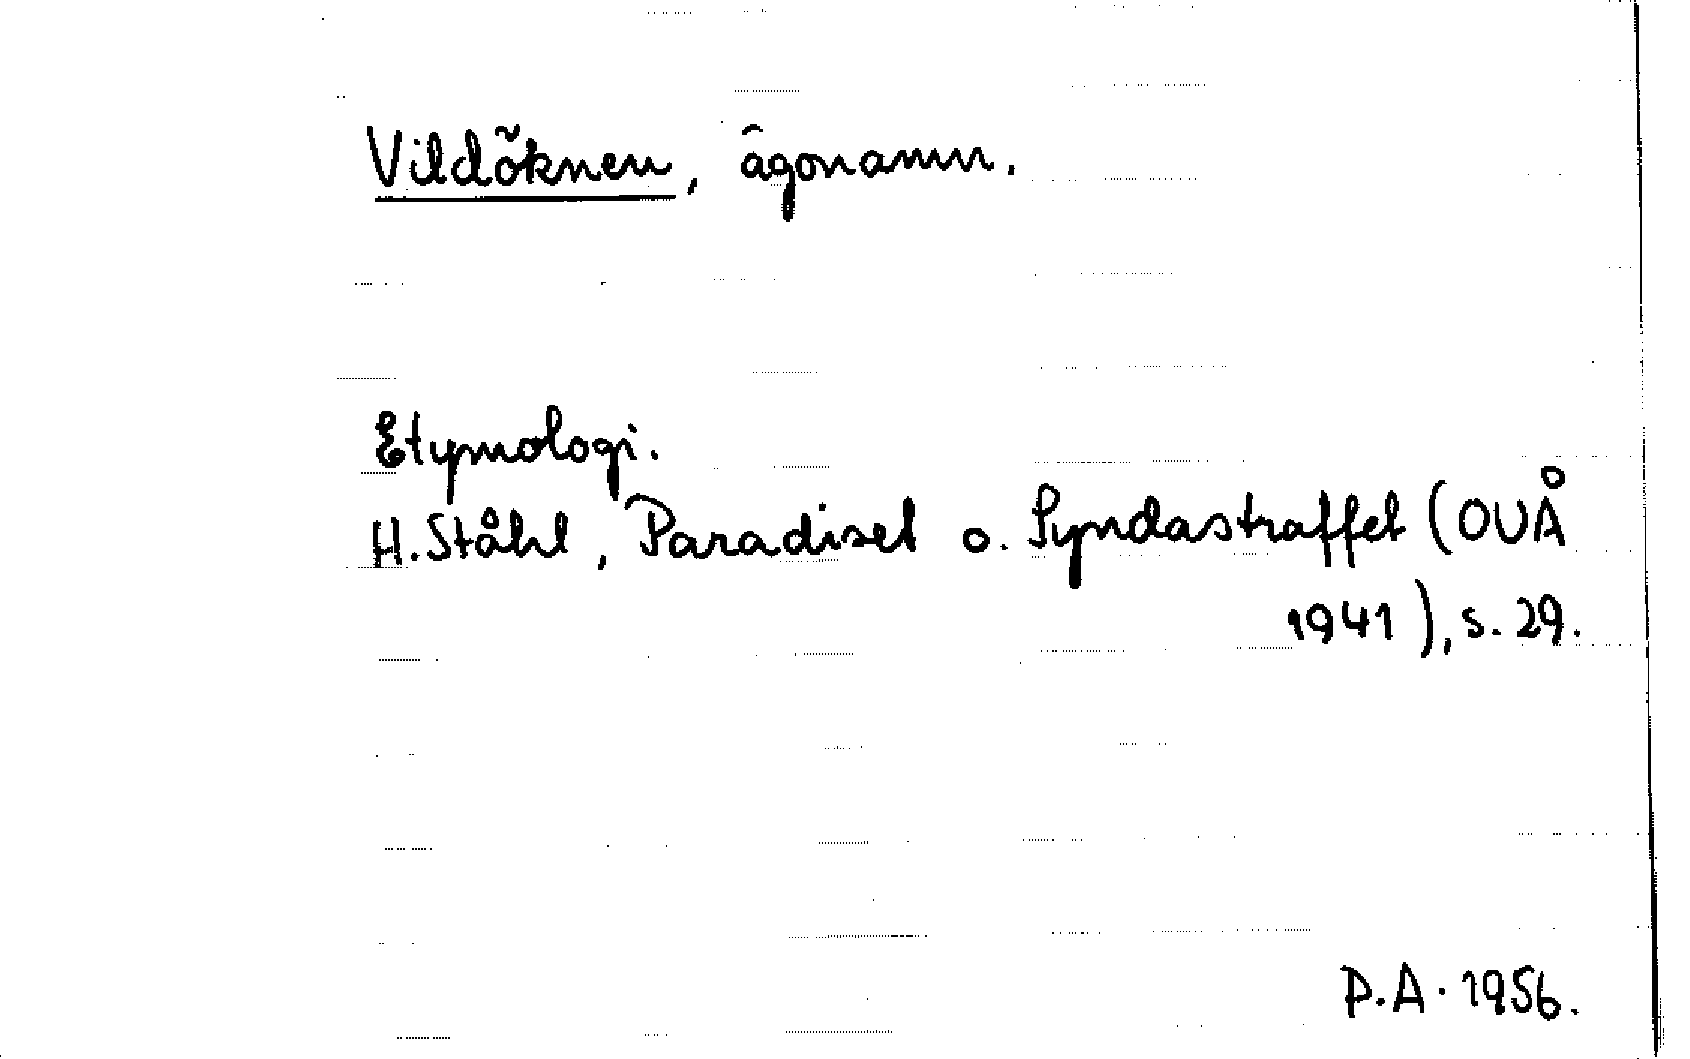 Vildöknen, ägonamn.
Etymologi.
H. Ståhl, Paradiset o. Syndastraffet (OUÅ
1941), s. 29.
P.A. 1956.